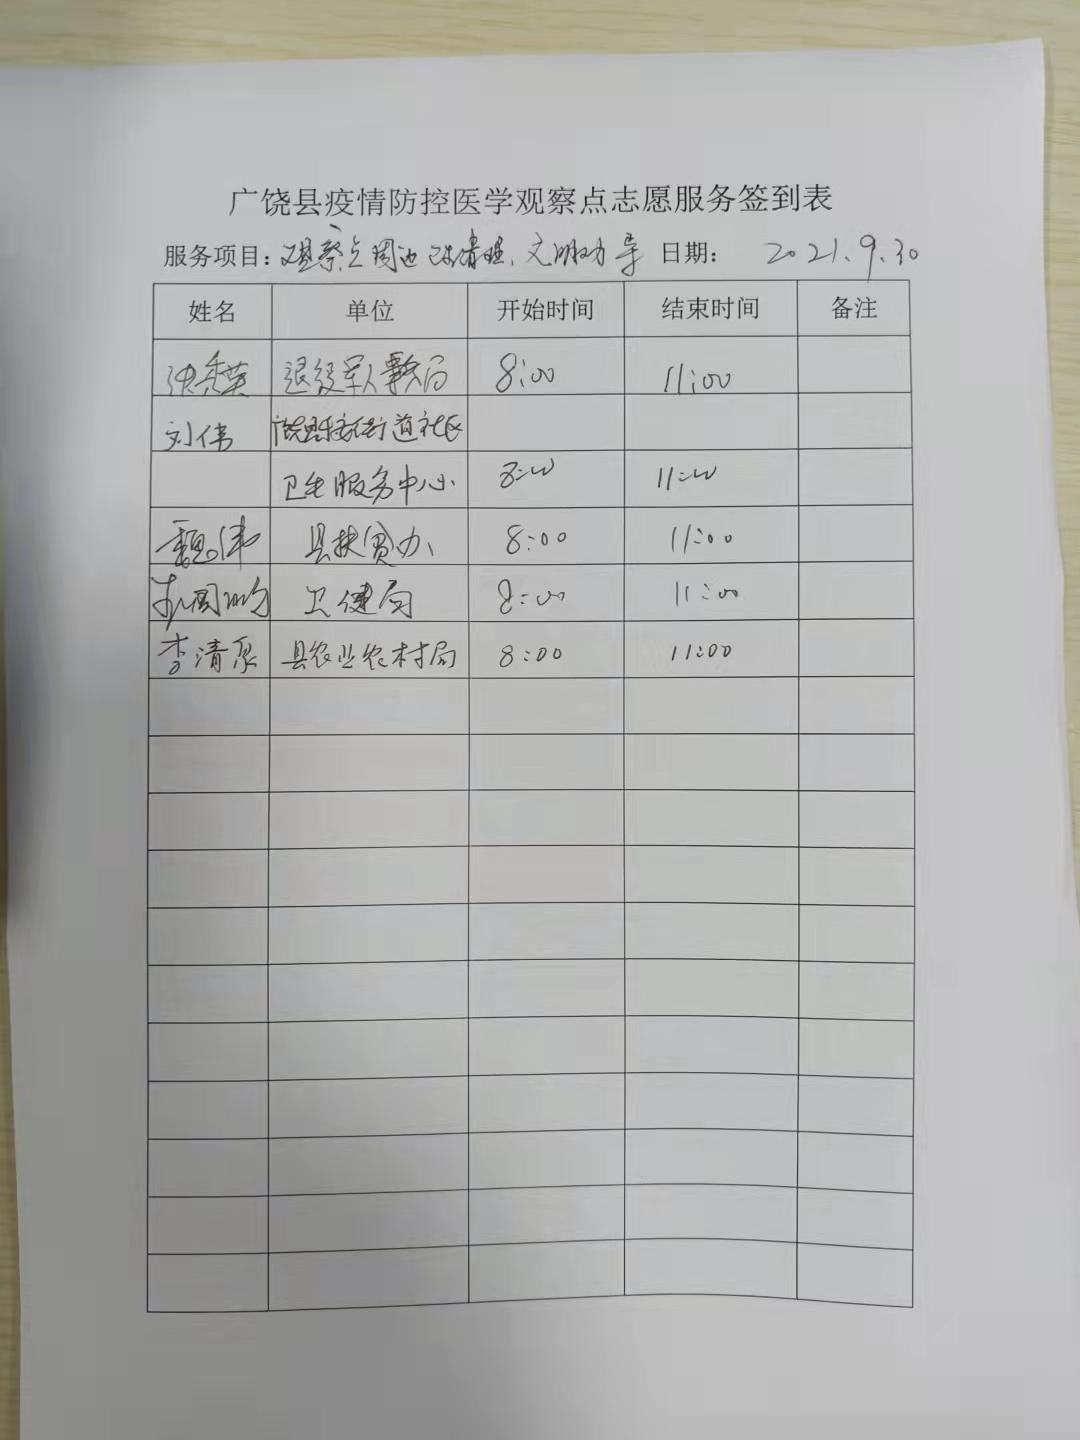 广饶县疫情防控医学观察点志愿服务签到表
服务项目：观察点周边环清理、文明劝导 日期： 2021.9.30
姓名 单位 开始时间 结束时间 备注
张秀英 退役军人事务局 8:00 11:00
刘伟 广饶县街道社区
卫生服务中心 8:00 11:00
魏伟 县扶贫办 8:00 11:00
卫健局 8:00 11:00
李清泉 县农业农村局 8:00 11:00